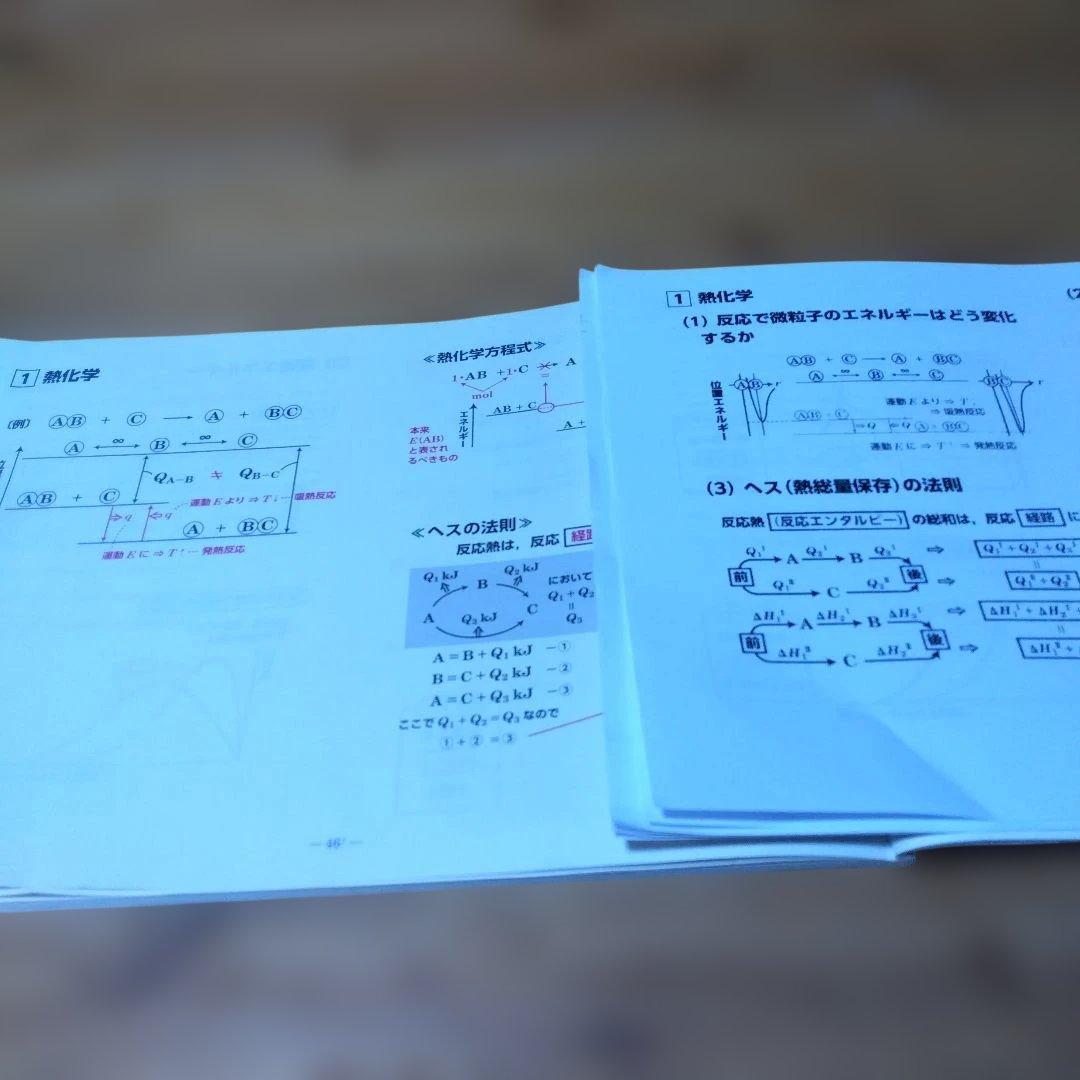 1 熱化学
(例) AB + C → A + BC
A ←∞→ B ←∞→ C
Q_A−B ≠ Q_B−C
AB + C
運動 E より ⇒ T↓… 吸熱反応
⇒q ⇐q
A + BC
運動 E に ⇒ T↑… 発熱反応
≪熱化学方程式≫
1・AB +1・C → A
mol
エネルギー
AB + C
=
A +
本来
E(AB)
と表され
るべきもの
≪ヘスの法則≫
反応熱は，反応
Q₁ kJ B Q₂ kJ において
A Q₃ kJ C Q₁ + Q₂
||
Q₃
A = B + Q₁ kJ −①
B = C + Q₂ kJ −②
A = C + Q₃ kJ −③
ここで Q₁ + Q₂ = Q₃ なので
① + ② = ③
− 46 −
1 熱化学
(1) 反応で微粒子のエネルギーはどう変化
するか
AB + C → A + BC
A ←∞→ B ←∞→ C
位置エネルギー
AB r
BC r
運動 E より ⇒ T↓
⇒ 吸熱反応
AB + C
⇒Q ⇐Q A + BC
運動 E に ⇒ T↑ ⇒ 発熱反応
(3) ヘス(熱総量保存)の法則
反応熱 (反応エンタルピー) の総和は，反応 経路 に
前 Q₁¹ A Q₂¹ B Q₃¹ 後 ⇒ Q₁¹ + Q₂¹ + Q₃¹
||
Q₁² C Q₂² ⇒ Q₁² + Q₂²
前 ΔH₁¹ A ΔH₂¹ B ΔH₃¹ 後 ⇒ ΔH₁¹ + ΔH₂¹ +
||
ΔH₁² C ΔH₂² ⇒ ΔH₁² +